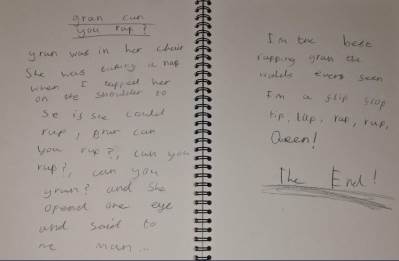 gran can
you rap?
gran was in her chair
She was taking a nap
when I tapped her
on the shoulder to
se if she could
rap, Gran can
you rap?, can you
rap?, can you
gran? and she
opend one eye
and said to
me man...
I'm the best
rapping gran the
worlds ever seen
I'm a flip flop
tip, tap, rap, rap,
Queen!
The End!